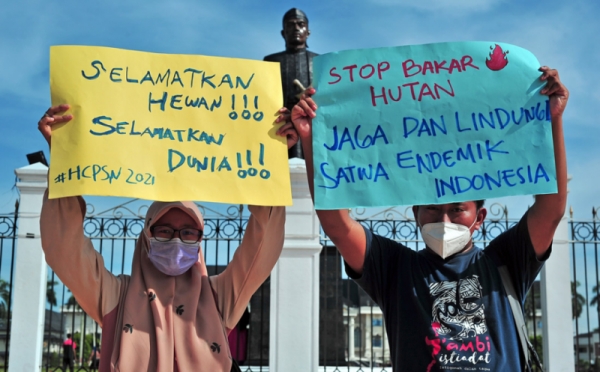 SELAMATKAN
HEWAN!!!
SELAMATKAN
DUNIA!!!
#HCPSN 2021
STOP BAKAR
HUTAN
JAGA DAN LINDUNGI
SATWA ENDEMIK
INDONESIA